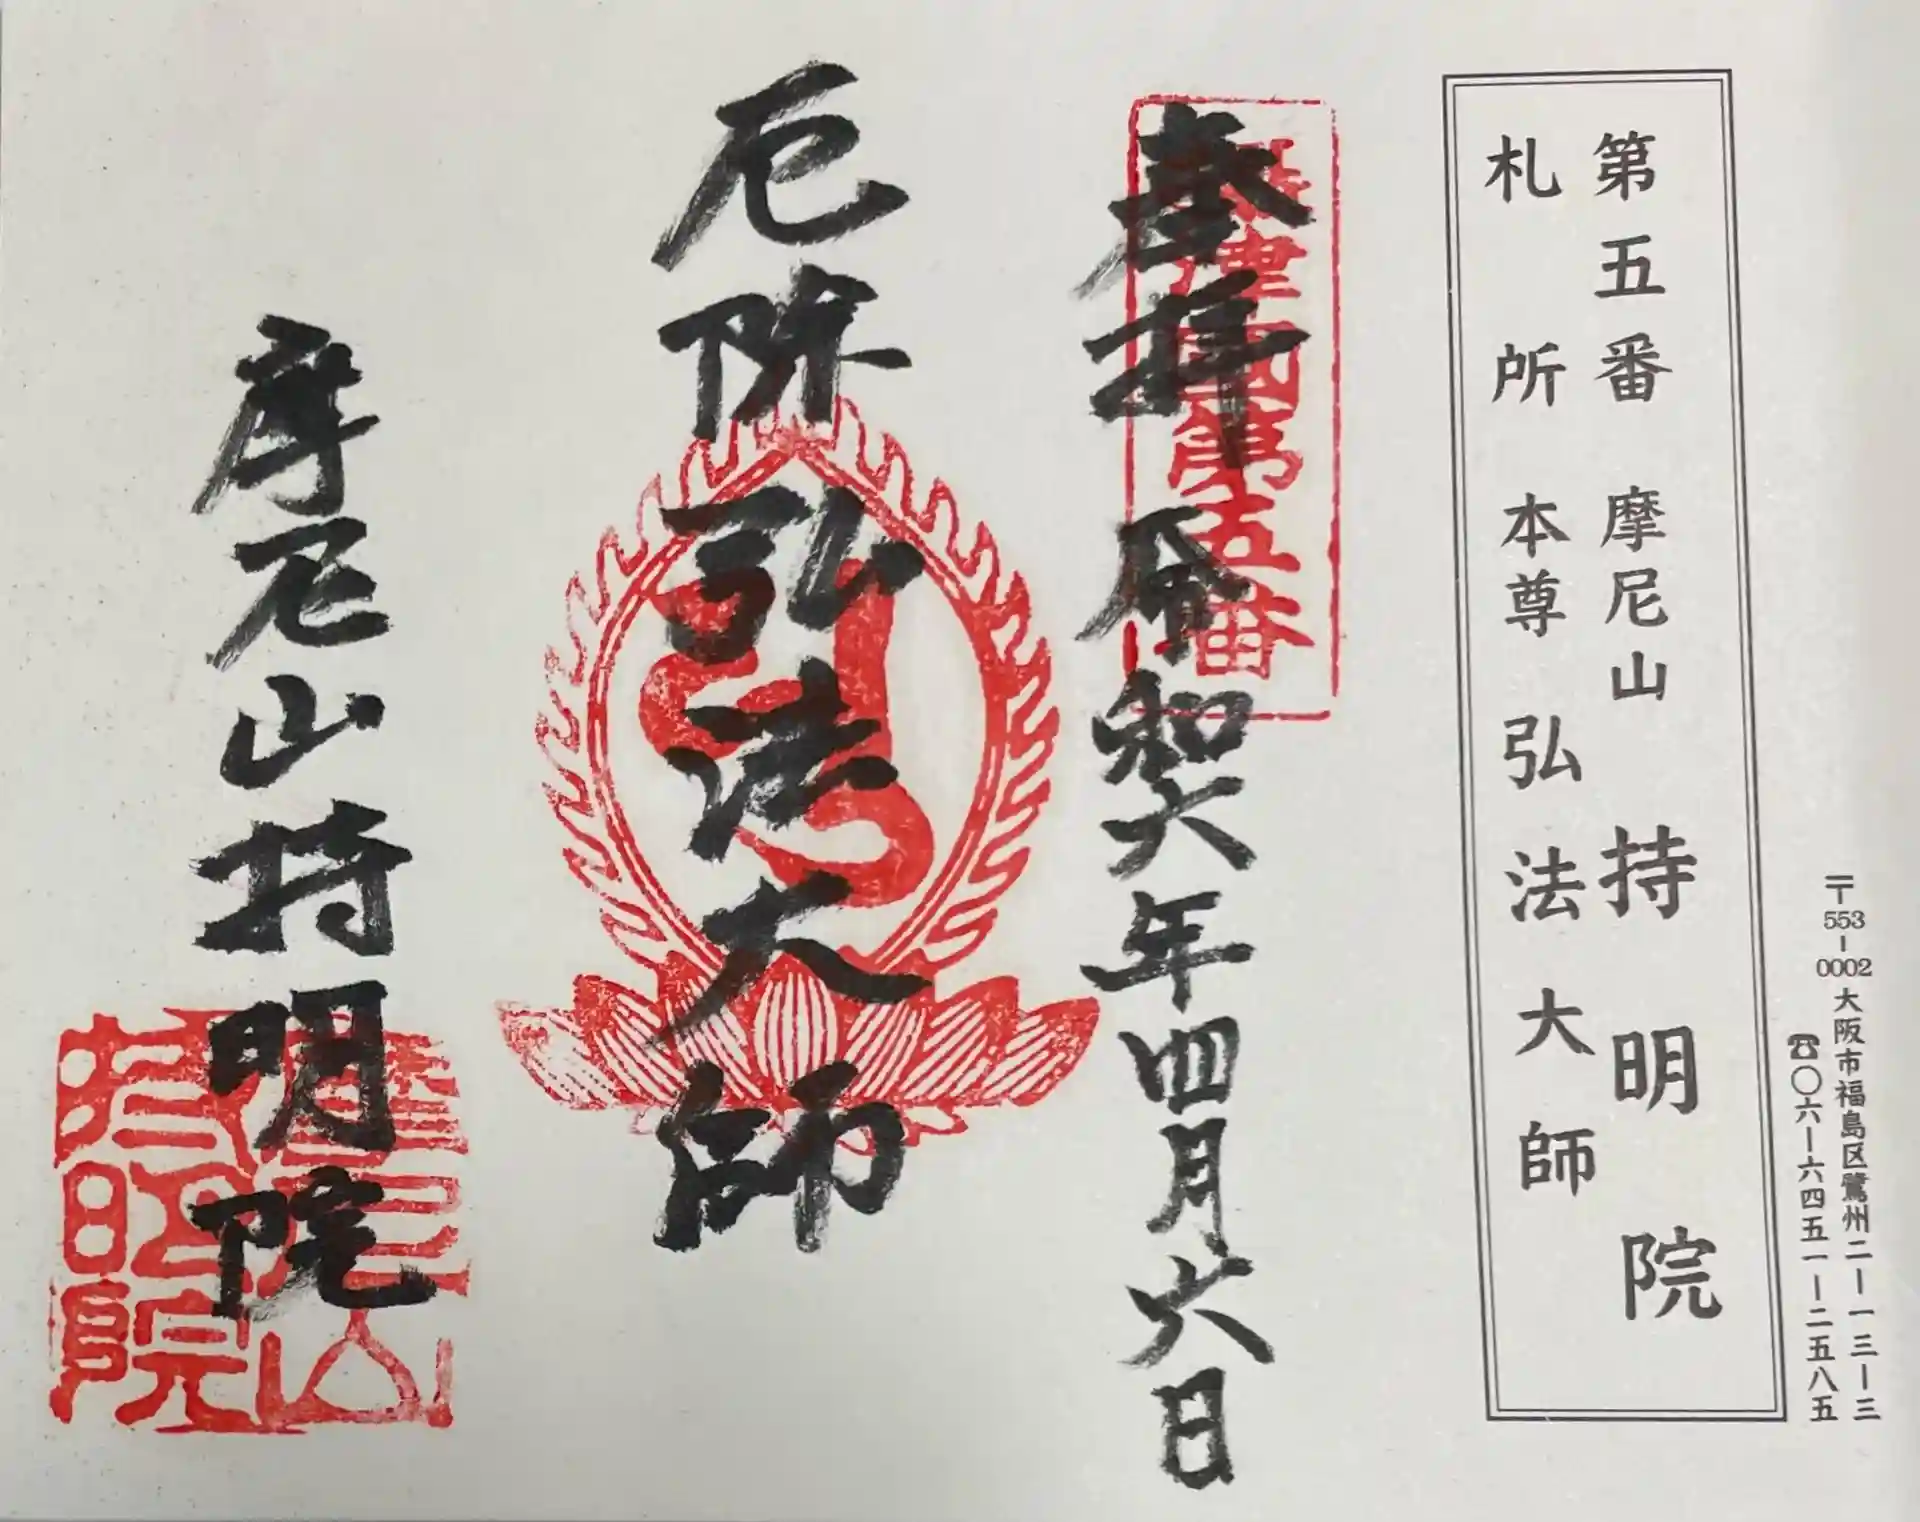 〒553-0002 大阪市福島区鷺州二ー一三ー三
☎〇六ー六四五一ー二五八五
第五番 摩尼山 持明院
札所本尊 弘法大師
奉拝 令和六年四月六日
攝津國第五番
厄除弘法大師
摩尼山持明院
摩尼山
持明院